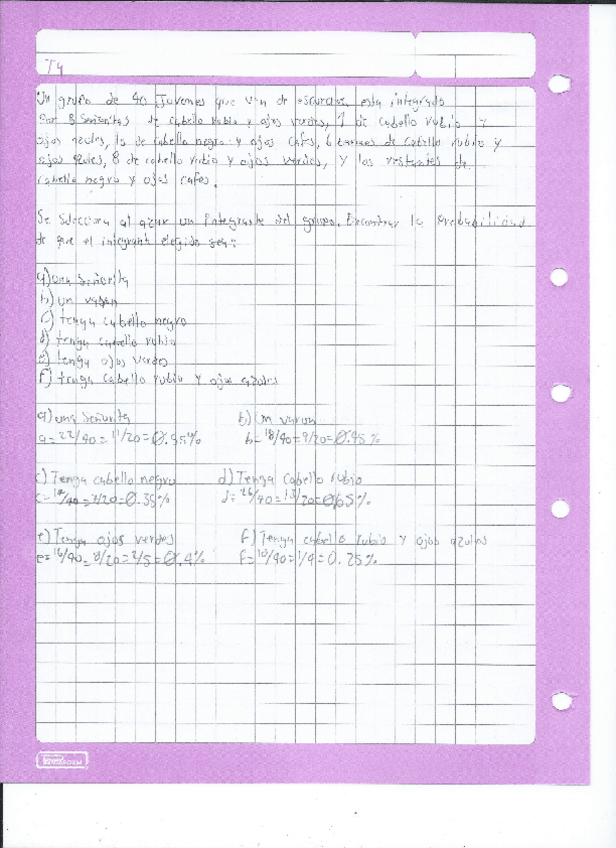 T4
Un grupo de 40 Jovenes que van de escursion, esta integrado
Por 8 Señoritas de cabello rubio y ojos verdes, 4 de cabello rubio y
ojos azules, 10 de cabello negro y ojos cafes, 6 varones de cabello rubio y
ojos azules, 8 de cabello rubio y ojos verdes, y los restantes de
cabello negro y ojos cafes.
Se selecciona al azar un integrante del grupo. Encontrar la Probabilidad
de que el integrante elegido sea:
a) una Señorita
b) un varon
c) tenga cabello negro
d) tenga cabello rubio
e) tenga ojos verdes
f) tenga cabello rubio y ojos azules
a) una Señorita b) Un varon
a=22/40=11/20=0.55% b=18/40=9/20=0.45%
c) Tenga cabello negro d) Tenga cabello rubio
c=14/40=7/20=0.35% d=26/40=13/20=0.65%
e) Tenga ojos verdes f) Tenga cabello rubio y ojos azules
e=16/40=8/20=2/5=0.4% f=10/40=1/4=0.25%